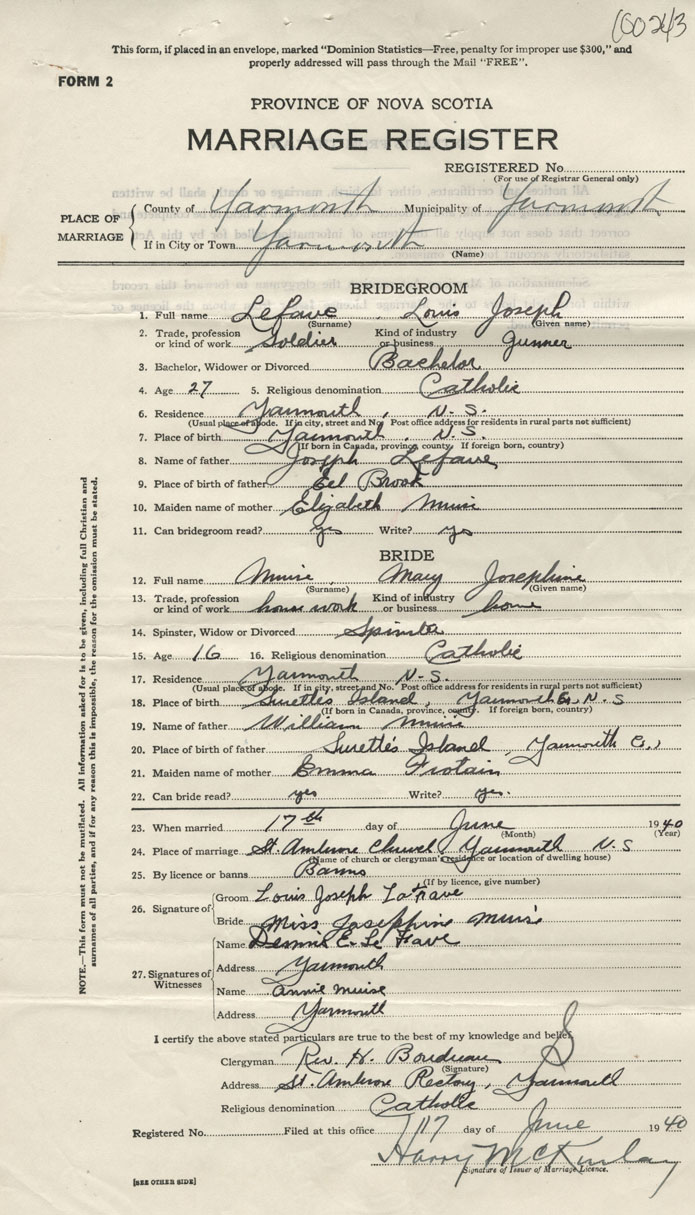 100243
This form, if placed in an envelope, marked "Dominion Statistics—Free, penalty for improper use $300," and
properly addressed will pass through the Mail "FREE".
FORM 2
PROVINCE OF NOVA SCOTIA
MARRIAGE REGISTER
REGISTERED No.
(For use of Registrar General only)
PLACE OF MARRIAGE
County of Yarmouth Municipality of Yarmouth
If in City or Town Yarmouth
(Name)
BRIDEGROOM
1. Full name LeFave, Louis Joseph
(Surname) (Given name)
2. Trade, profession or kind of work Soldier Kind of industry or business Gunner
3. Bachelor, Widower or Divorced Bachelor
4. Age 27 5. Religious denomination Catholic
6. Residence Yarmouth, N.S.
(Usual place of abode. If in city, street and No. Post office address for residents in rural parts not sufficient)
7. Place of birth Yarmouth, N.S.
(If born in Canada, province, county. If foreign born, country)
8. Name of father Joseph Lefave
9. Place of birth of father Eel Brook
10. Maiden name of mother Elizabeth Muise
11. Can bridegroom read? yes Write? yes
BRIDE
12. Full name Muise, Mary Josephine
(Surname) (Given name)
13. Trade, profession or kind of work house work Kind of industry or business home
14. Spinster, Widow or Divorced Spinster
15. Age 16 16. Religious denomination Catholic
17. Residence Yarmouth N.S.
(Usual place of abode. If in city, street and No. Post office address for residents in rural parts not sufficient)
18. Place of birth Surette's Island, Yarmouth Co. N.S
(If born in Canada, province, county. If foreign born, country)
19. Name of father William Muise
20. Place of birth of father Surette's Island, Yarmouth Co.,
21. Maiden name of mother Emma Frotain
22. Can bride read? yes Write? yes.
23. When married 17th day of June 1940
(Month) (Year)
24. Place of marriage St. Ambrose Church Yarmouth N.S
(Name of church or clergyman's residence or location of dwelling house)
25. By licence or banns Banns
(If by licence, give number)
26. Signature of
Groom Louis Joseph LaFave
Bride Miss Josephine Muise
27. Signatures of Witnesses
Name Dennis E. Le Fave
Address Yarmouth
Name Annie Muise
Address Yarmouth
I certify the above stated particulars are true to the best of my knowledge and belief.
Clergyman Rev. H. Boudreau
(Signature)
Address St. Ambrose Rectory, Yarmouth
Religious denomination Catholic
Registered No. Filed at this office 17 day of June 1940
Harry McKinlay
Signature of Issuer of Marriage Licence.
[SEE OTHER SIDE]
NOTE.—This form must not be mutilated. All information asked for is to be given, including full Christian and
surnames of all parties, and if for any reason this is impossible, the reason for the omission must be stated.